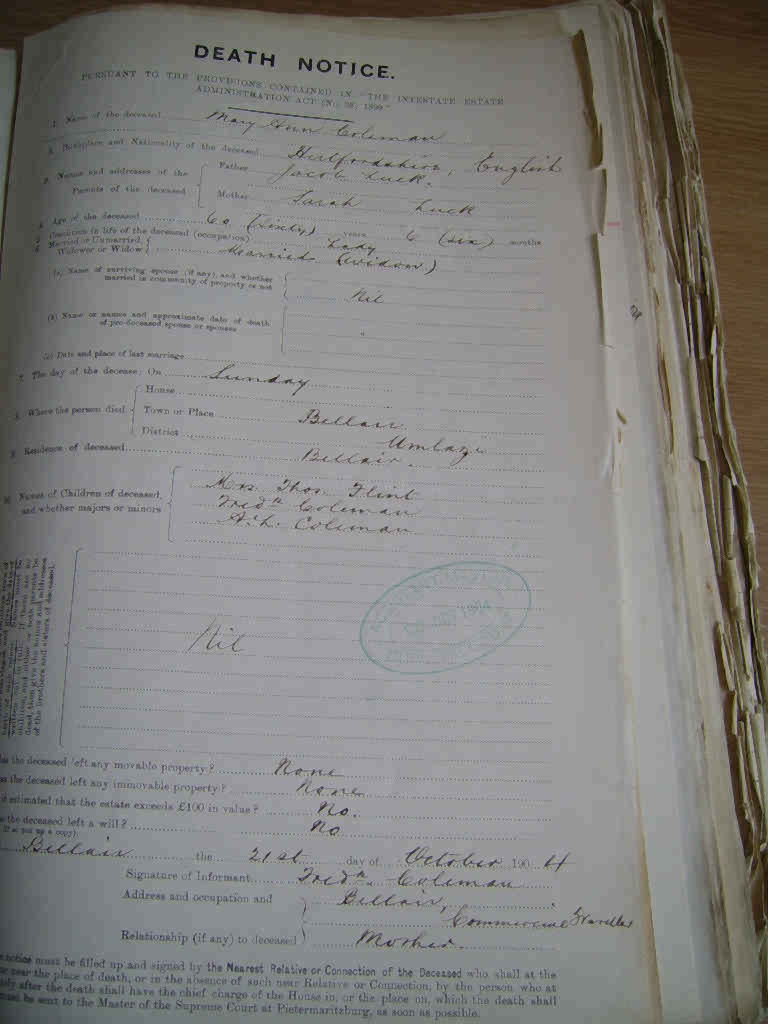 DEATH NOTICE.
PURSUANT TO THE PROVISIONS CONTAINED IN "THE INTESTATE ESTATE
ADMINISTRATION ACT (No. 38, 1899"
1. Name of the deceased Mary Ann Coleman
2. Birthplace and Nationality of the deceased Hertfordshire, English
3. Names and addresses of the Parents of the deceased
Father Jacob Luck.
Mother Sarah Luck
4. Age of the deceased 60 (Sixty) years 6 (six) months
5. Condition in life of the deceased (occupation) Lady
6. Married or Unmarried, Widower or Widow Married (widow)
(a) Name of surviving spouse (if any), and whether
married in community of property or not Nil
(b) Name or names and approximate date of death
of pre-deceased spouse or spouses "
(c) Date and place of last marriage
7. The day of the decease; On Sunday
8. Where the person died
House
Town or Place Bellair
District Umlazi
9. Residence of deceased Bellair.
10. Names of Children of deceased,
and whether majors or minors
Mrs. Thos. Flint
Fredk Coleman
A.L. Coleman
children, and either or both parents be
dead, then give the names and addresses
of the brothers and sisters of deceased.
Nil
1904
the deceased left any movable property? None
the deceased left any immovable property? None
estimated that the estate exceeds £100 in value? No.
the deceased left a will? No
(If so put up a copy)
Bellair the 21st day of October 1904
Signature of Informant Fredk Coleman
Address and occupation and Bellair,
Commercial Traveller
Relationship (if any) to deceased Mother.
notice must be filled up and signed by the Nearest Relative or Connection of the Deceased who shall at the
near the place of death, or in the absence of such near Relative or Connection, by the person who at
after the death shall have the chief charge of the House in, or the place on, which the death shall
must be sent to the Master of the Supreme Court at Pietermaritzburg, as soon as possible.